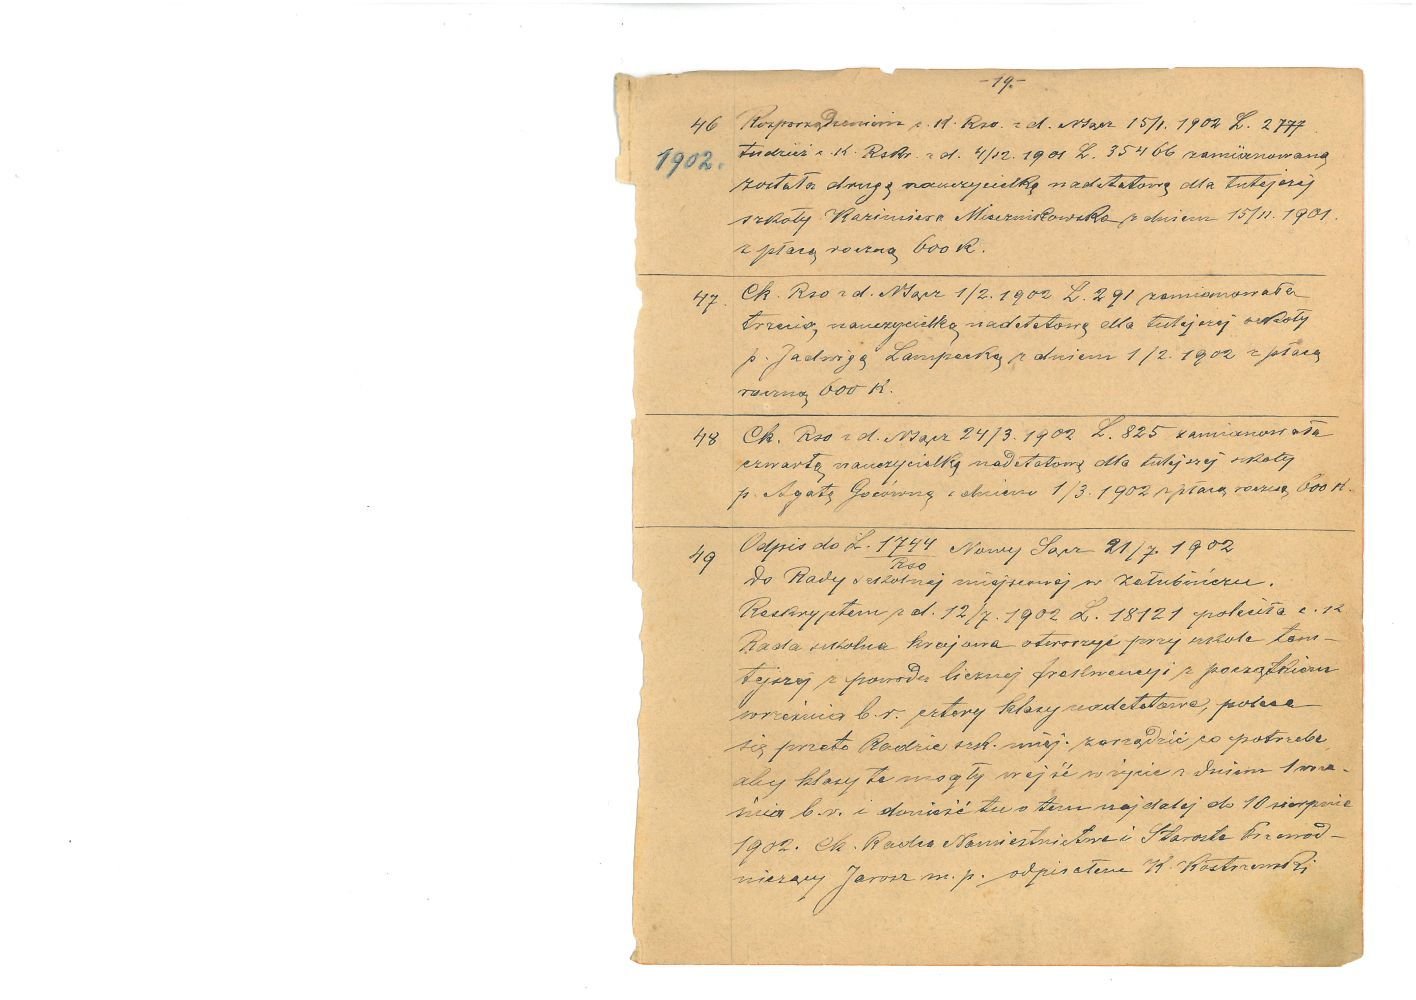 -19.-
46 Rozporządzeniem c. K. Rso. z d. NSącz 15/1. 1902 L. 2777
1902. tudzież c. K. Rskr. z d. 4/12. 1901 L. 35466 zamianowaną
została drugą nauczycielką nadetatową dla tutejszej
szkoły Kazimiera z dniem 15/11. 1901.
z płacą roczną 600 K.
47. Ck. Rso z d. NSącz 1/2. 1902 L. 291 zamianowała
trzecią nauczycielką nadetatową dla tutejszej szkoły
p. Jadwigę Lampecką z dniem 1/2. 1902 z płacą
roczną 600 K.
48 Ck. Rso z d. NSącz 24/3. 1902 L. 825 zamianowała
czwartą nauczycielką nadetatową dla tutejszej szkoły
p. Agatę z dniem 1/3. 1902 z płacą roczną 600 K.
49 Odpis do L. 1744 Nowy Sącz 21/7. 1902
Rso
do Rady szkolnej miejscowej w Załubińczu.
Reskryptem z d. 12/7. 1902 L. 18121 poleciła c. K
Rada szkolna krajowa otworzyć przy szkole tam-
tejszej z powodu licznej frekwencyi z początkiem
września b. r. cztery klasy nadetatowe, poleca
się przeto Radzie szk. miej. zarządzić co potrzeba
aby klasy te mogły wejść w życie z dniem 1 wrze-
śnia b. r. i donieść tu o tem najdalej do 10 sierpnia
1902. Ck. Radca Namiestnictwa i Starosta Przewod-
niczący Jarosz m. p. odpisałem K. Kostrzewski